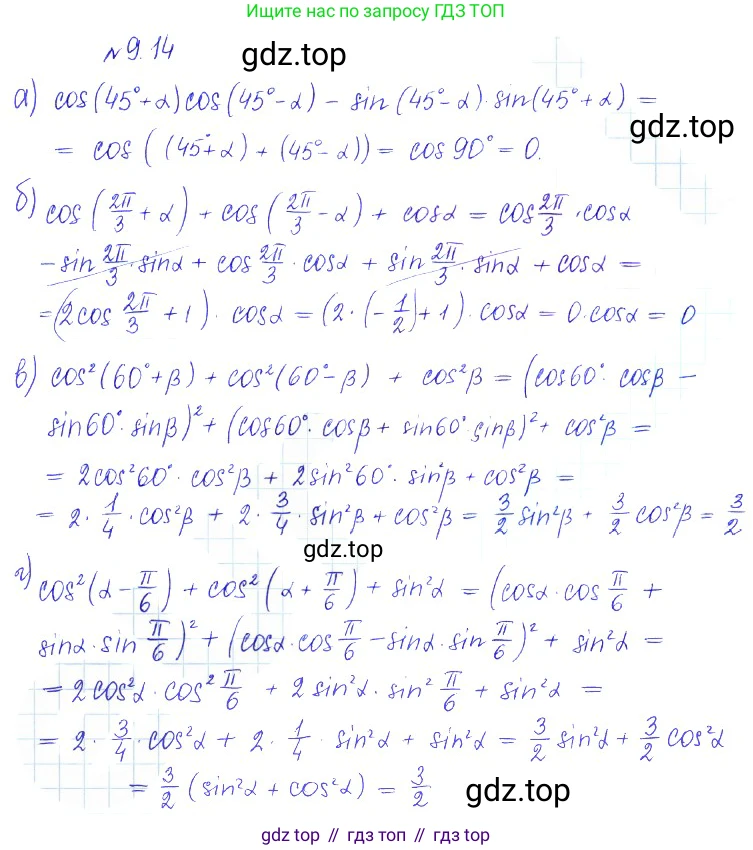 Ищите нас по запросу ГДЗ ТОП
№9.14
gdz.top
а) cos(45°+α)cos(45°-α) - sin(45°-α)·sin(45°+α) =
gdz.top
= cos((45°+α)+(45°-α)) = cos90° = 0.
б) cos(2π/3 + α) + cos(2π/3 - α) + cosα = cos 2π/3 · cosα
- sin 2π/3 · sinα + cos 2π/3 · cosα + sin 2π/3 · sinα + cosα =
= (2cos 2π/3 + 1) · cosα = (2·(-1/2)+1) · cosα = 0·cosα = 0
в) cos²(60°+β) + cos²(60°-β) + cos²β = (cos60° · cosβ -
sin60° · sinβ)² + (cos60° · cosβ + sin60° · sinβ)² + cos²β =
= 2cos²60° · cos²β + 2sin²60° · sin²β + cos²β =
= 2 · 1/4 · cos²β + 2 · 3/4 · sin²β + cos²β = 3/2 sin²β + 3/2 cos²β = 3/2
gdz.top
г) cos²(α - π/6) + cos²(α + π/6) + sin²α = (cosα · cos π/6 +
sinα · sin π/6)² + (cosα · cos π/6 - sinα · sin π/6)² + sin²α =
= 2cos²α · cos² π/6 + 2sin²α · sin² π/6 + sin²α =
= 2 · 3/4 · cos²α + 2 · 1/4 · sin²α + sin²α = 3/2 sin²α + 3/2 cos²α
= 3/2 (sin²α + cos²α) = 3/2
gdz.top
гдз топ // гдз топ // гдз топ